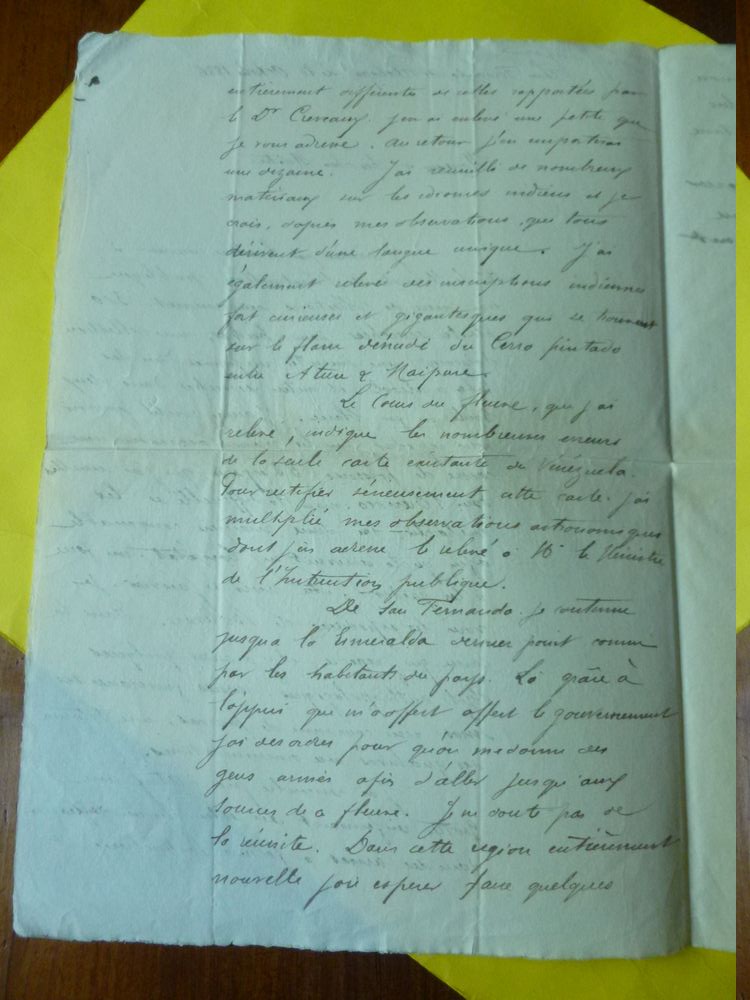 entièrement differentes de celles rapportées par
le Dr Crevaux. j'en ai enlevé une petite que
je vous adresse. au retour j'en emporterai
une dizaine. J'ai recueilli de nombreux
materiaux sur les idiomes indiens et je
crois, d'après mes observations, que tous
dérivent d'une langue unique. J'ai
également relevé des inscriptions indiennes
fort curieuses et gigantesques que se trouvent
sur le flanc dénudé du Cerro pintado
entre Atures & Maipure.
Le Cours du fleuve, que j'ai
relevé, indique les nombreuses erreurs
de la seule carte existante du Vénézuela.
Pour rectifier sérieusement cette carte. j'ai
multiplié mes observations astronomiques
dont j'ai adressé le relevé à Mr le Ministre
de l'Instruction publique.
De San Fernando. je continue
jusqu'a la Esmeralda dernier point connu
par les habitants du pays. Là grâce à
l'appui que m'a offert offert le gouvernement
j'ai des ordres pour qu'on me donne des
gens armés afin d'aller jusqu'aux
sources de ce fleuve. Je ne doute pas de
la réussite. Dans cette région entièrement
nouvelle j'ose esperer faire quelques